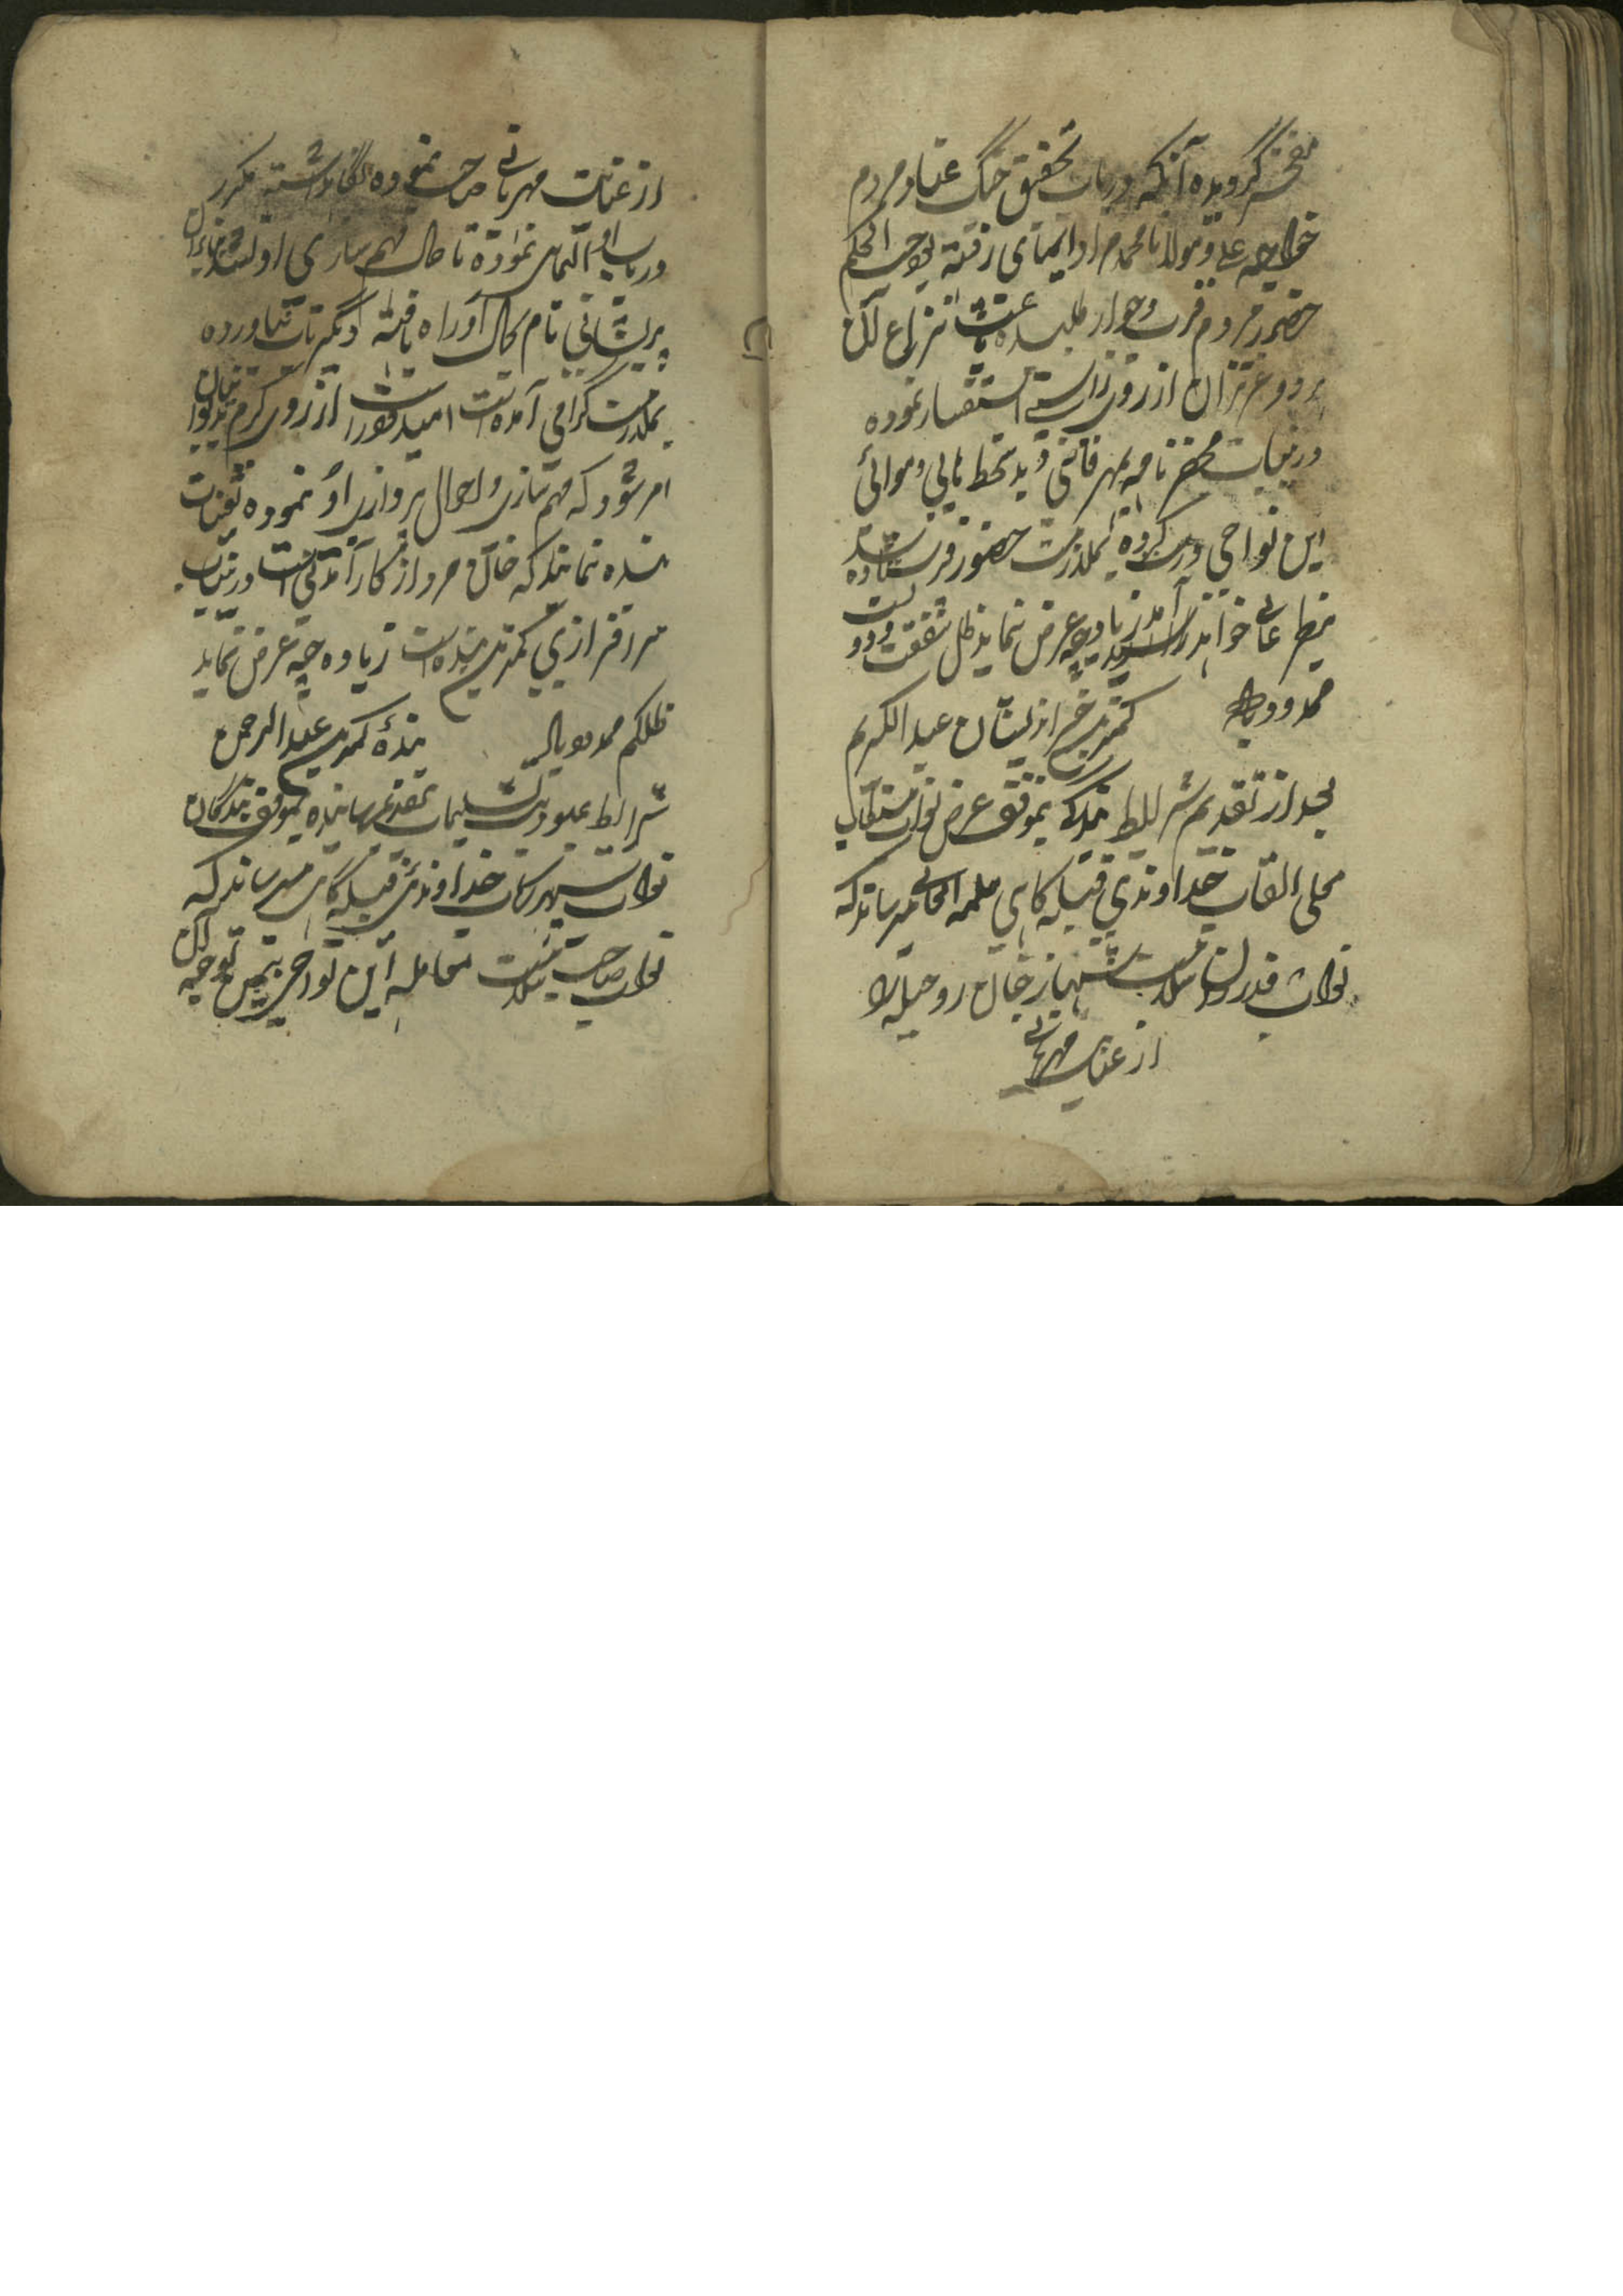 مفخر گردیده آنکه در باب تحقیق جنگ عناد مردم
خواجه علی و مولانا محمد مراد ایمای رفته بود حسب الحکم
حضور مردم قرب و جوار طلبیده باعث نزاع کلان
هر دو عزیزان از روی راستی استفسار نموده
درینباب محضرنامه بمهر قاضی و بدستخط اهالی و موالی
این نواحی درست کرده بملازمت حضور فرستاده شد
بنظر عالی خواهد رسید زیاده چه عرض نماید ظل شفقت
ممدود باد کمترین خیراندیشان عبد الکریم
بعد از تقدیم شرایط بندگی بموقف عرض نواب مستطاب
معلی القاب خداوندی قبله گاهی میرساند که
نواب قدردان سلامت شهباز خان روحیله را
از عنایت مهربانی
از عنایت مهربانی صاحب نموده نگاهداشته مکرر
در باب او التماس نموده تا حال مهم سازی او نشده
پریشانی تمام بحال او راه یافته دیگر تاب نیاورده
بملازمت گرامی آمده است امیدوار است از روی کرم
امر شود که مهم سازی و احوال پردازی او نموده تعینات
بنده نمایند که خان مرد از کار آمدنی است درینباب
سرافرازی کمترین بنده است زیاده چه عرض نماید
ظلکم ممدود باد بندهٔ کمترین عبد الرحمن
شرایط عبودیت تسلیمات بتقدیم رسانیده بموقف بندگان
نواب سپهر رکاب خداوندی قبله گاهی میرساند که
نواب صاحب سلامت معامله این نواحی بیمن توجه